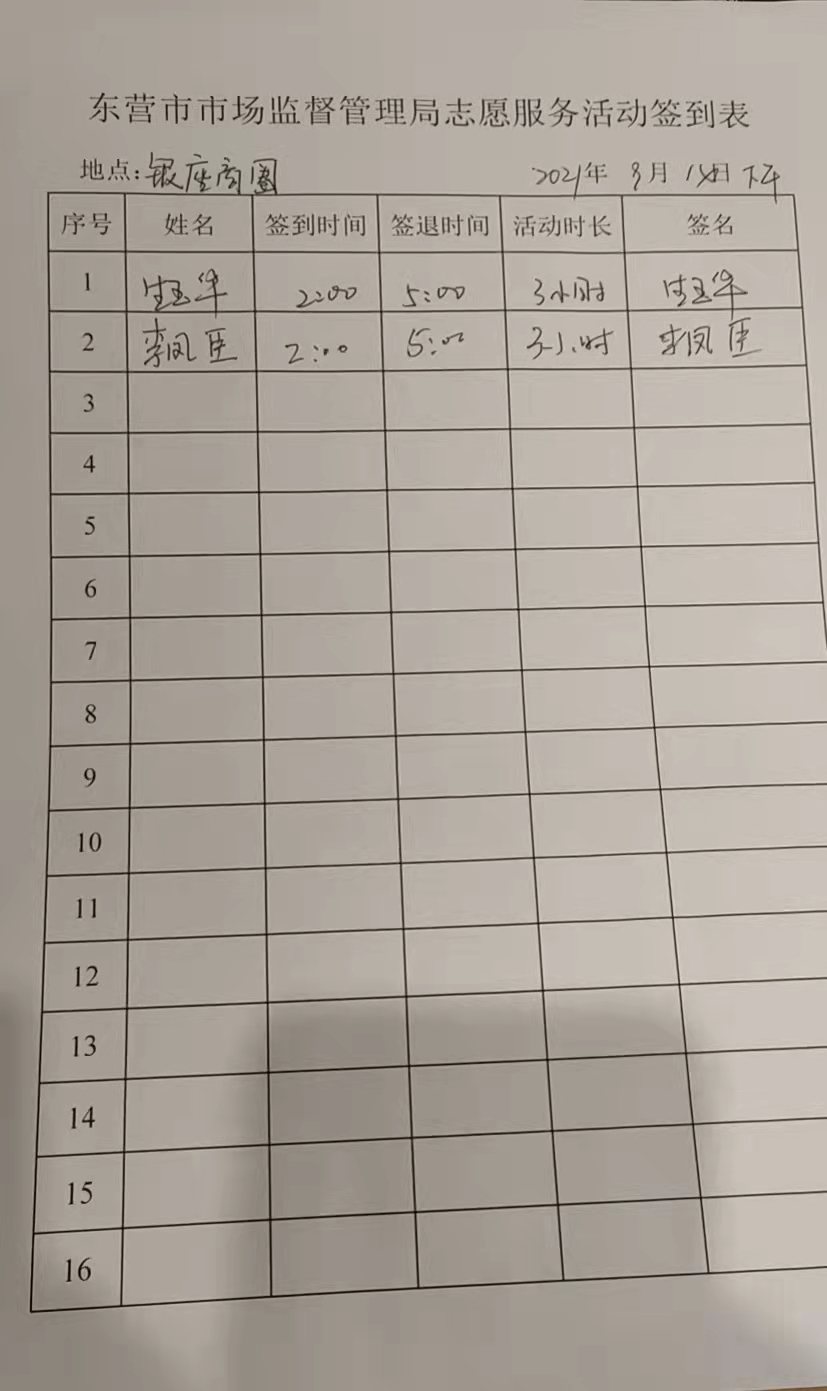 东营市市场监督管理局志愿服务活动签到表
地点:银座商圈 2021年 3月 日 下午
序号 姓名 签到时间 签退时间 活动时长 签名
1 生玉华 2:00 5:00 3小时 生玉华
2 李凤臣 2:00 5:00 3小时 李凤臣
3
4
5
6
7
8
9
10
11
12
13
14
15
16